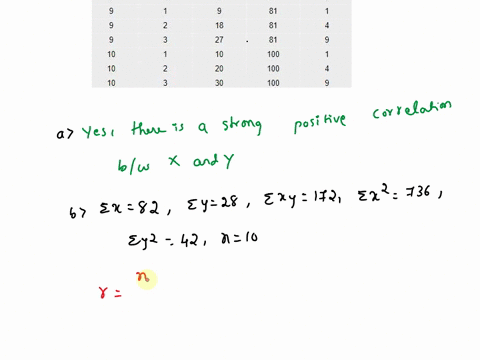 9 1 9 81 1
9 2 18 81 4
9 3 27 81 9
10 1 10 100 1
10 2 20 100 4
10 3 30 100 9
a> Yes, there is a strong positive correlation
b/w X and Y
b> Σx = 82, Σy = 28, Σxy = 172, Σx² = 736,
Σy2 = 42, n = 10
n
r =